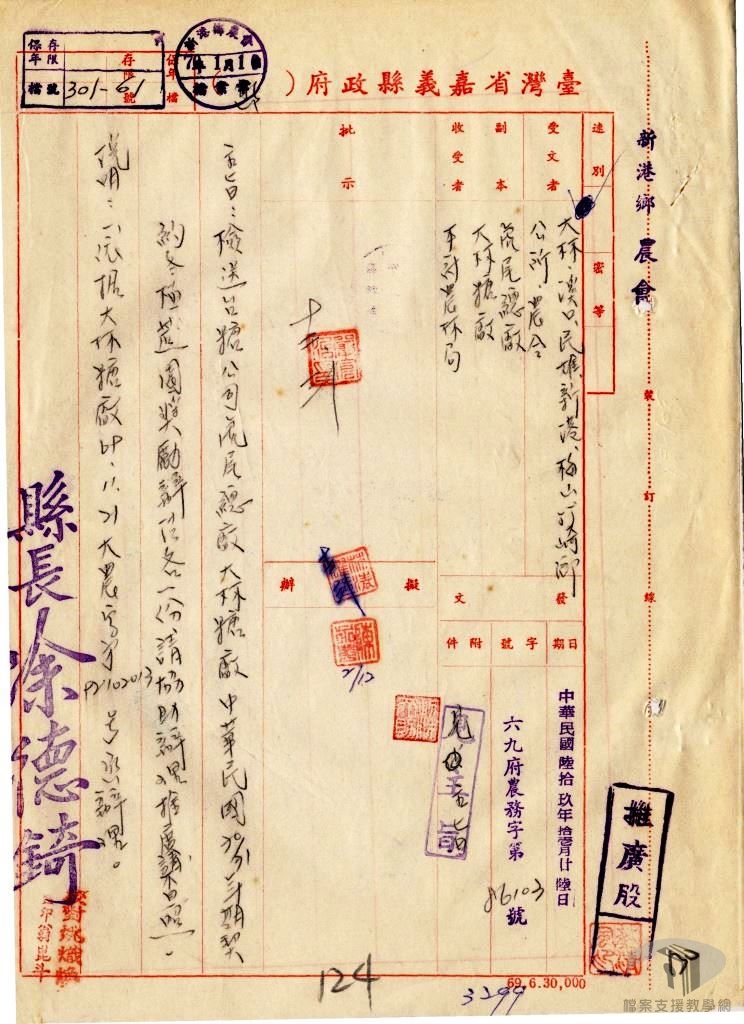 新港鄉農會
裝訂線
臺灣省嘉義縣政府(　　)
速別
密等
受文者
大林、溪口、民雄、新港、梅山、竹崎鄉
公所、農會
副本
收受者
虎尾總廠
大林糖廠
本府農林局
批示
擬辦
發文
日期
中華民國陸拾玖年拾壹月廿陸日
字號
六九府農務字第86103號
附件
見主旨
主旨：檢送台糖公司虎尾總廠大林糖廠中華民國70/71年期契
約冬植蔗園獎勵辦法各一份，請協助辦理推廣，請查照。
說明：一、依據大林糖廠69.11.21大農字第 號函辦理。
縣長涂德錡
校對姚熾
印翁崑斗
存限
保年
檔號
301-61
存限
號
保年
檔
新港鄉農會
推廣股
2/12
124
3299
69.6.30,000
檔案支援教學網